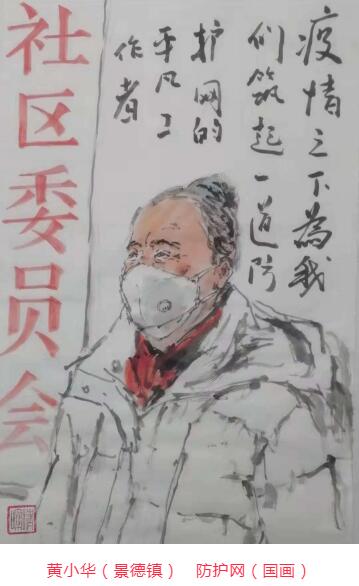 疫情之下為我
们筑起一道防
护网的
平凡工
作者
社区委员会
黄小华（景德镇）　防护网（国画）